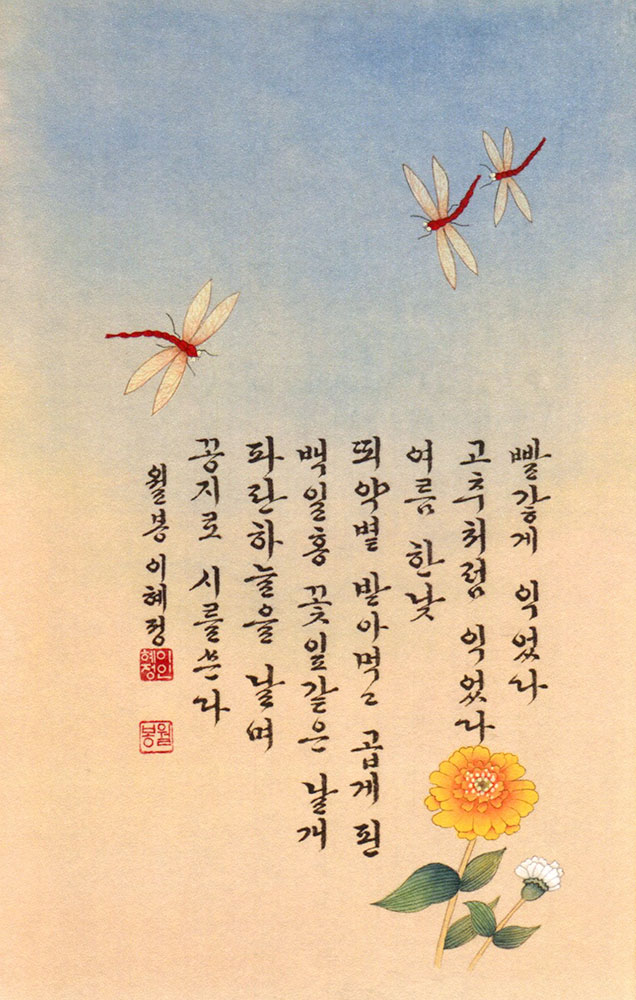 빨갛게 익었나
고추처럼 익었나
여름 한낮
뙤약볕 받아먹고 곱게 핀
백일홍 꽃잎같은 날개
파란하늘을 날며
꽁지로 시를쓴다
월봉 이혜정
이인혜정
월봉